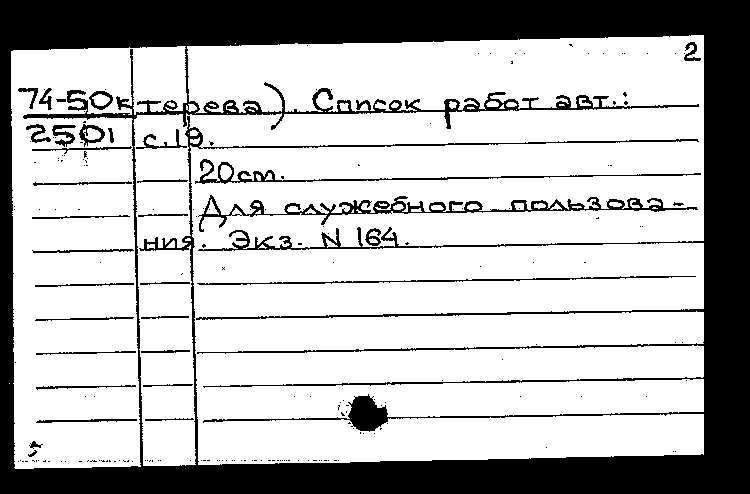 2
74-50к терева). Список работ авт.:
2501 с.19.
20см.
Для служебного пользова-
ния. Экз. N 164.